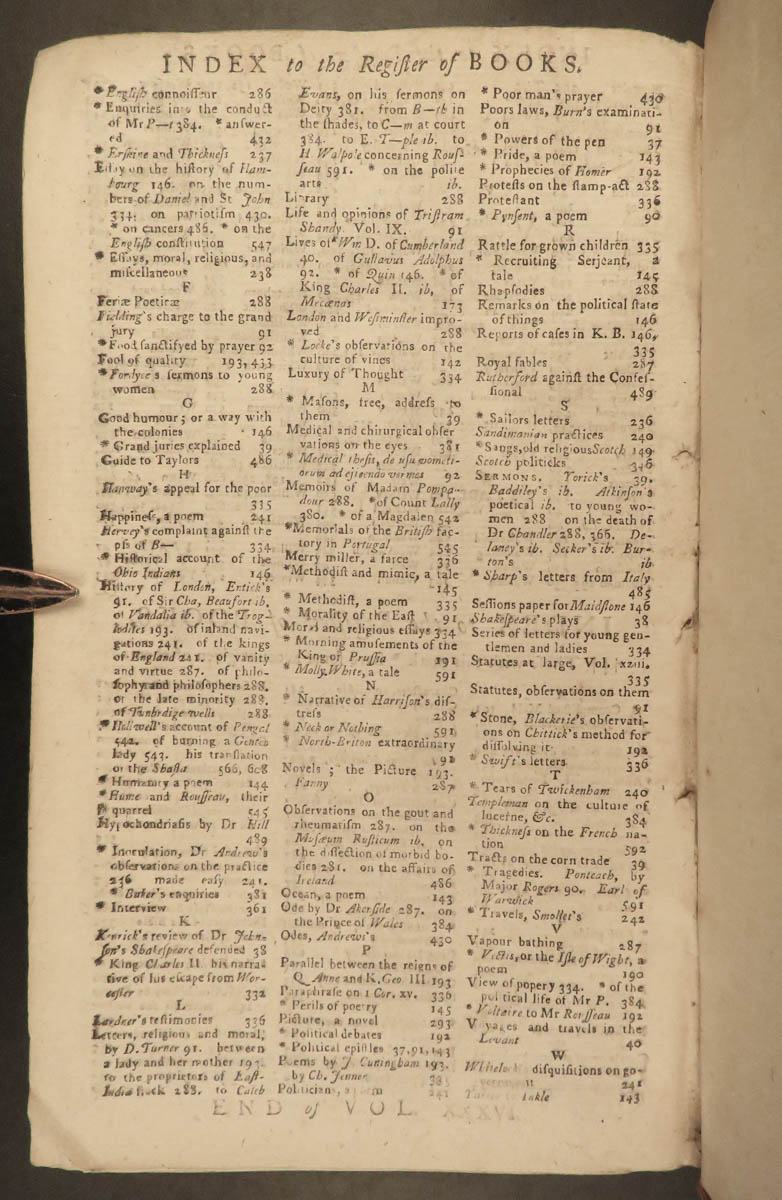 INDEX to the Regiſter of BOOKS.
* Engliſh connoiſſeur 286
* Enquiries into the conduct
of Mr P—t 384. * anſwer-
ed 432
* Erſkine and Thickneſs 237
Eſſay on the hiſtory of Ham-
bourg 146. on the num-
bers of Daniel and St John
334. on patriotiſm 430.
* on cancers 486. * on the
Engliſh conſtitution 547
* Eſſays, moral, religious, and
miſcellaneous 238
F
Feriæ Poeticæ 288
Fielding's charge to the grand
jury 91
* Food ſanctifyed by prayer 92
Fool of quality 193, 433
* Fordyce's ſermons to young
women 288
G
Good humour; or a way with
the colonies 146
* Grand juries explained 39
Guide to Taylors 486
H
Hanway's appeal for the poor
335
Happineſs, a poem 241
Hervey's complaint against the
of B— 334
* Hiſtorical account of the
Ohio Indians 146
Hiſtory of London, Entick's
91. of Sir Cha, Beaufort ib.
of Vandalia ib. of the Trog-
lodites 193. of inland navi-
gations 241. of the kings
of England 241. of vanity
and virtue 287. of philo-
ſophy and philoſophers 288.
of the late minority 288.
of Tunbrdige wells 288
* Hollwell's account of Bengal
542. of burning a Gentoo
lady 543. his tranſlation
of the Shaſta 566, 608
* Humanity a poem 144
* Hume and Rouſſeau, their
quarrel 545
Hypochondriaſis by Dr Hill
489
* Inoculation, Dr Andrew's
obſervations on the practice
236 made eaſy 241.
* Baker's enquiries 381
* Interview 361
K
Kenrick's review of Dr John-
ſon's Shakeſpeare defended 38
* King Charles II. his narra-
tive of his eſcape from Wor-
ceſter 332
L
Lardner's teſtimonies 336
Letters, religious and moral,
by D. Turner 91. between
a lady and her mother 193.
to the proprietors of Eaſt-
India ſtock 288. to Caleb
Evans, on his ſermons on
Deity 381. from B—th in
the ſhades, to C—m at court
384. to E. T—ple ib. to
H Walpole concerning Rouſ-
ſeau 591. * on the polite
arts ib.
Library 288
Life and opinions of Triſtram
Shandy. Vol. IX. 91
Lives of * Wm D. of Cumberland
40. of Guſtavus Adolphus
92. * of Quin 146. * of
King Charles II. ib, of
Mecænas 173
London and Weſtminſter impro-
ved 288
* Locke's obſervations on the
culture of vines 142
Luxury of Thought 334
M
* Maſons, free, addreſs to
them 39
Medical and chirurgical obſer
vations on the eyes 381
* Medical theſis, de uſu vomiti-
orum ad ejiciendo vermes 92
Memoirs of Madam Pompa-
dour 288. * of Count Lally
380. * of a Magdalen 542
* Memorials of the Britiſh fac-
tory in Portugal 545
Merry miller, a farce 336
* Methodiſt and mimic, a tale
145
* Methodiſt, a poem 335
* Morality of the Eaſt 91
Moral and religious eſſays 334
* Morning amuſements of the
King of Pruſſia 191
* Molly White, a tale 591
N
* Narrative of Harriſon's diſ-
treſs 288
* Neck or Nothing 591
* North-Briton extraordinary
92
Novels; the Picture 193.
Fanny 287
O
Obſervations on the gout and
rheumatiſm 287. on the
Muſæum Ruſticum ib, on
the diſſection of morbid bo-
dies 281. on the affairs of
Ireland 486
Ocean, a poem 143
Ode by Dr Akenſide 287. on
the Prince of Wales 384
Odes, Andrews's 430
P
Parallel between the reigns of
Q Anne and K. Geo. III 193
Paraphraſe on 1 Cor. xv. 336
* Perils of poetry 145
Picture, a novel 293
* Political debates 192
* Political epiſtles 37,91,143
Poems by J. Cuningham 193.
by Ch. Jenner 385
Politicians, a poem 241
* Poor man's prayer 430
Poors laws, Burn's examinati-
on 91
* Powers of the pen 37
* Pride, a poem 143
* Prophecies of Homer 192
Proteſts on the ſtamp-act 288
Proteſtant 336
* Pynſent, a poem 90
R
Rattle for grown children 335
* Recruiting Serjeant, a
tale 145
Rhapſodies 288
Remarks on the political ſtate
of things 146
Reports of caſes in K. B. 146,
335
Royal fables 287
Rutherford againſt the Confeſ-
ſional 489
S
* Sailors letters 236
Sandimanian practices 240
* Sangs, old religious Scotch 149
Scotch politicks 336
SERMONS. Yorick's 39.
Baddiley's ib. Atkinſon's
poetical ib. to young wo-
men 288 on the death of
Dr Chandler 288, 366. De-
laney's ib. Secker's ib. Bur-
ton's ib
* Sharp's letters from Italy
485
Seſſions paper for Maidſtone 146
Shakeſpeare's plays 38
Series of letters for young gen-
tlemen and ladies 334
Statutes at large, Vol. xxiii.
335
Statutes, obſervations on them
91
* Stone, Blackerie's obſervati-
ons on Chittick's method for
diſſolving it 192
* Swift's letters 336
T
* Tears of Twickenham 240
Templeman on the culture of
lucerne, &c. 384
* Thickneſs on the French na-
tion 592
Tracts on the corn trade 39
* Tragedies. Ponteach, by
Major Rogers 90. Earl of
Warwick 591
* Travels, Smollet's 242
V
Vapour bathing 287
* Vectis, or the Iſle of Wight, a
poem 190
View of popery 334. * of the
political life of Mr P. 384
* Voltaire to Mr Rouſſeau 192
Voyages and travels in the
Levant 40
W
diſquiſitions on go-
241
Inkle 143
END of VOL. XXXVI.